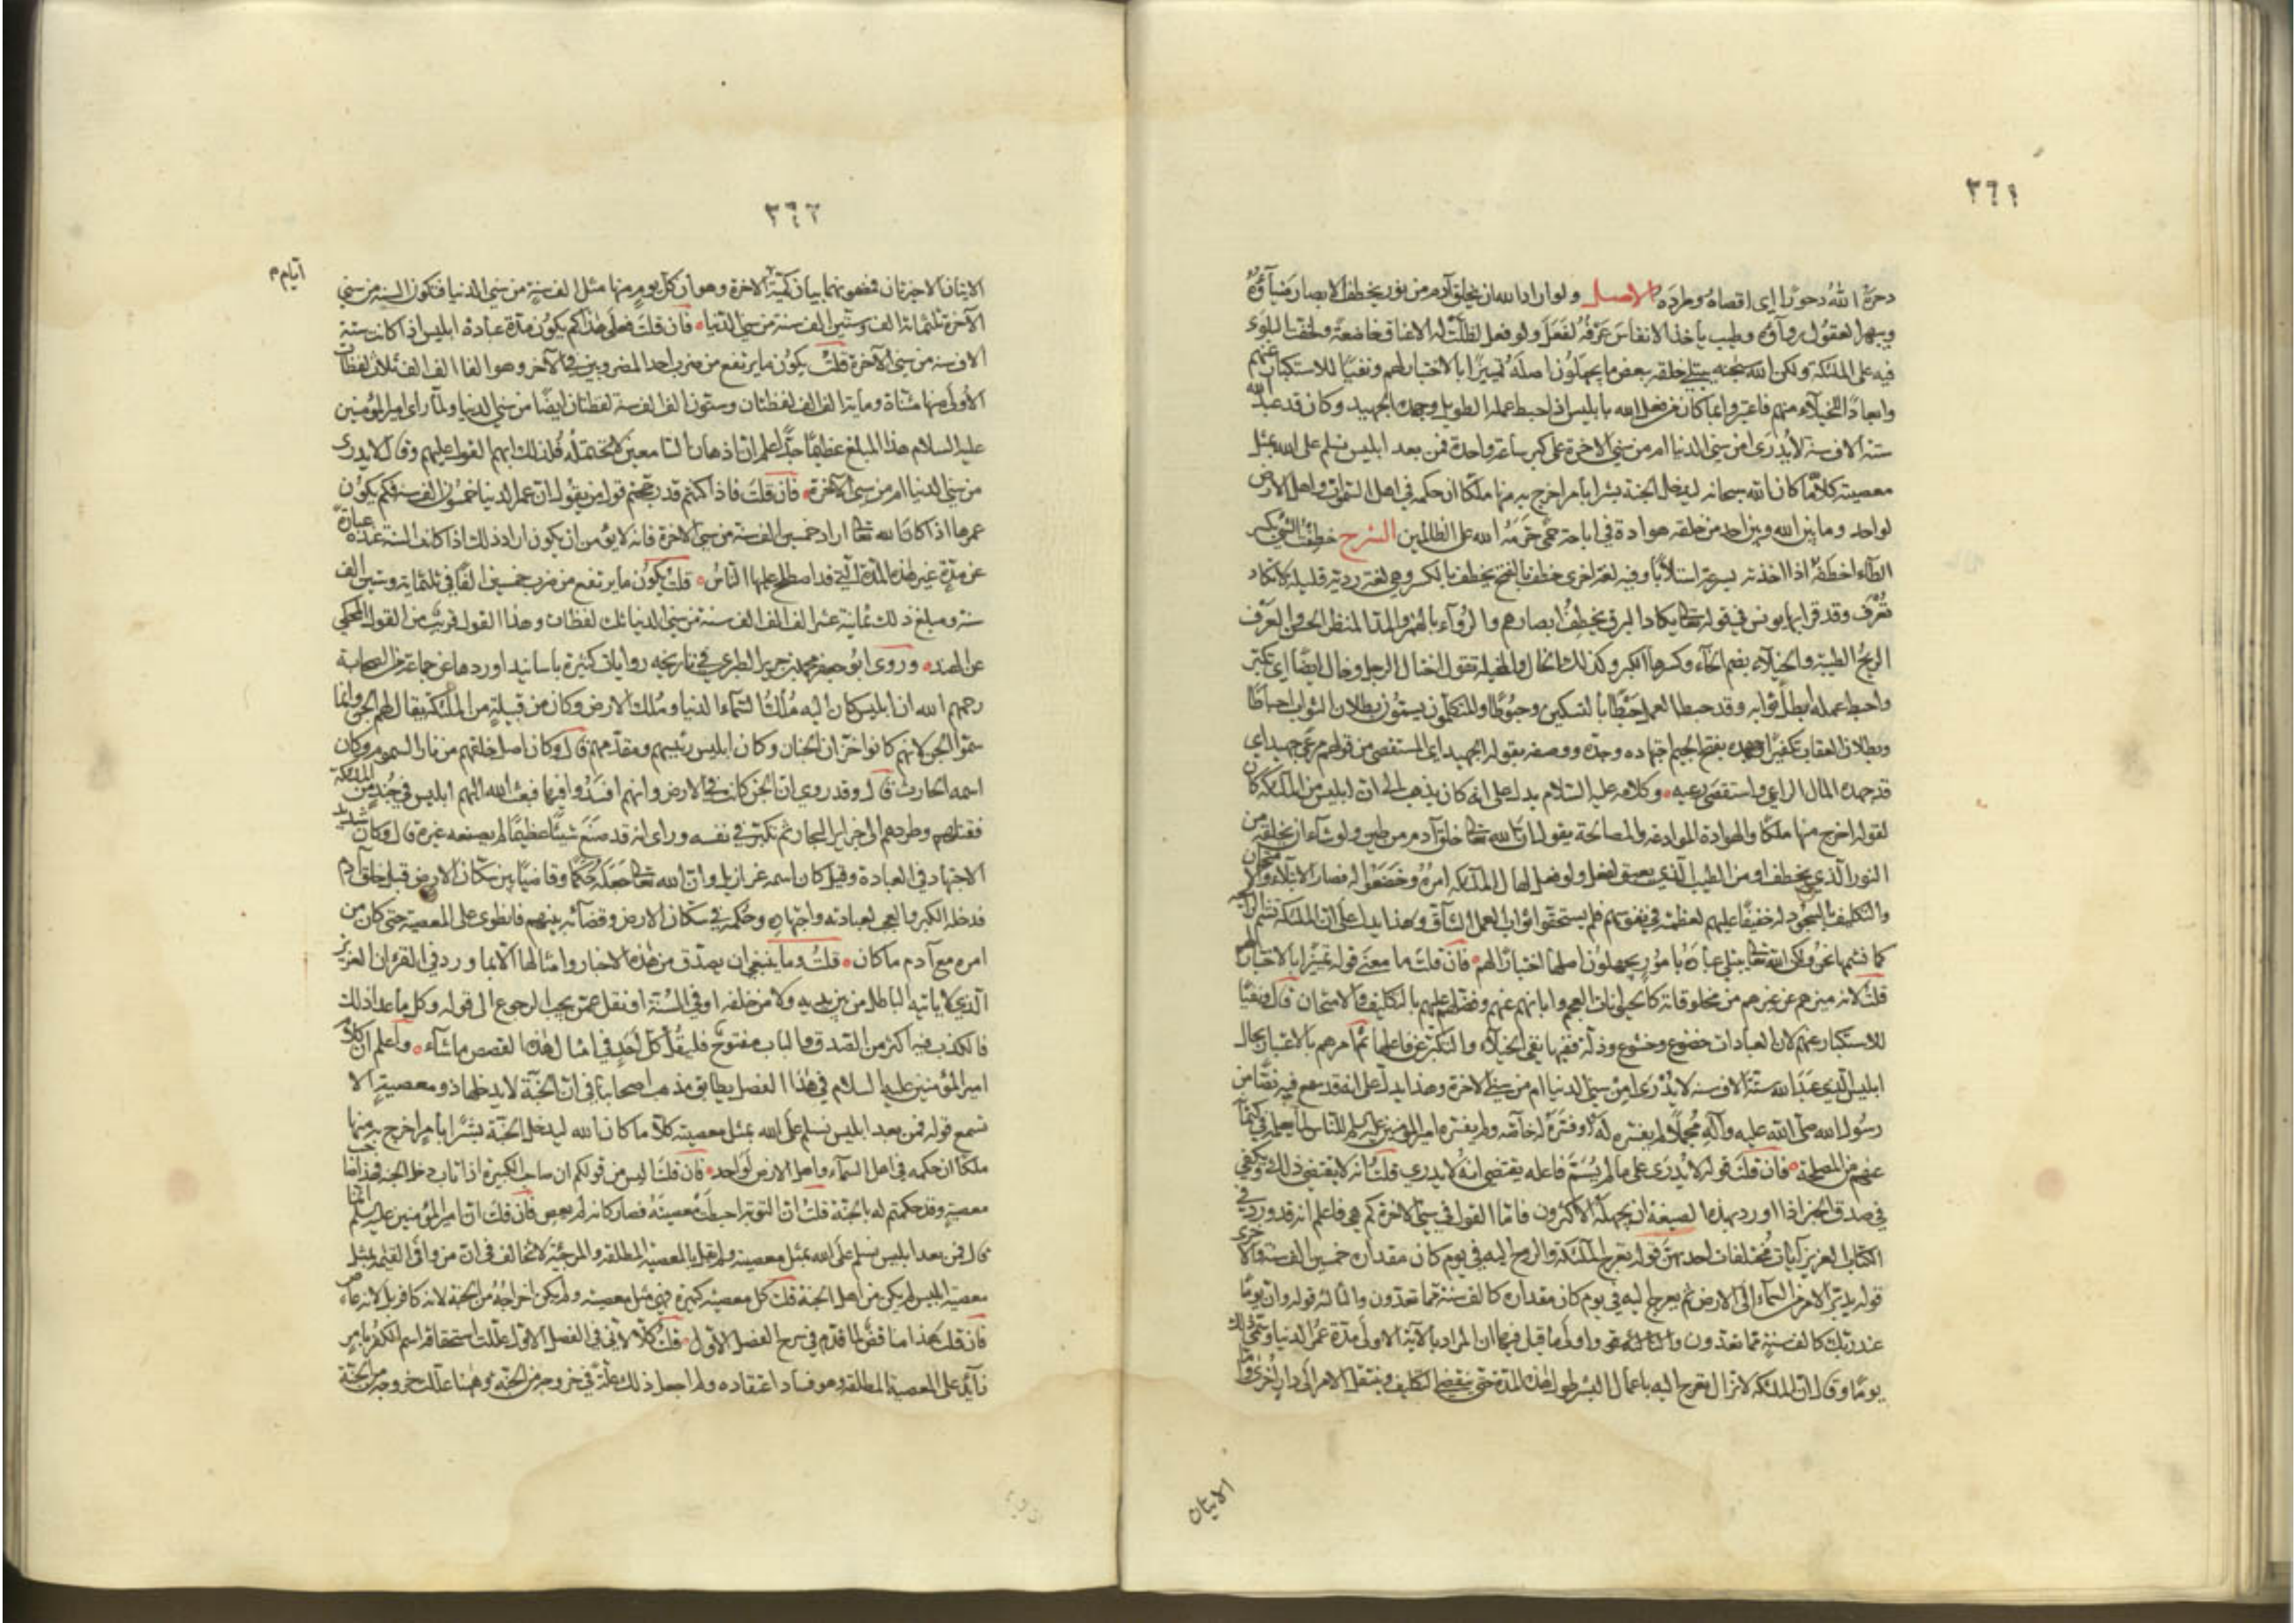 ٣٦١
دحره الله دحورا اى اقصاه وطرده الاصل ولو اراد الله ان يخلق آدم من نور يخطف الابصار ضيآؤه
ويبهر العقول روآؤه وطيب ياخذ الانفاس عَرْفُه لَفَعَلَ ولو فعل لظلّتْ له الاعناق خاضعةً ولخفت البلوى
فيه على الملئكة ولكن الله سبحنه يبتلي خلقه ببعض ما يجهلون اصلَهُ تمييزًا بالاختبار لهم ونفيًا للاستكبار عنهم
وابعادًا للخيلآء منهم فاعتبروا بما كان من فعل الله بابليس اذ احبط عمله الطويل وجهده الجهيد وكان قد عبد الله
ستة الاف سنة لا يُدْرَى امن سني الدنيا ام من سني الاخرة على كبر ساعة واحدة فمن بعد ابليس يسلم على الله بمثل
معصيته كلّا ما كان الله سبحانه ليدخل الجنة بشرا بامر اخرج به منها ملكًا ان حكمه في اهل السّموات واهل الارض
لواحد وما بين الله وبين احد من خلقه هوادة في اباحة حمًى حَرّمَهُ الله على الظالمين الشرح خطِفْتُ الشئ بكسر
الطآء اخطَفُهُ اذا اخذته بسرعة استلابًا وفيه لغة اخرى خطف بالفتح يخطف بالكسر وهي لغة رديّة قليلة لا تكاد
تُعْرَف وقد قرا بها يونس في قوله تعالى يكاد البرق يخطِفُ ابصارهم والرُوآء بالهمز والمد المنظر الحسن والعَرْف
الريحُ الطيبة والخيلآء بضم الخآء وكسرها الكبر وكذلك الخال والمخيلة تقول اختال الرجل وخال ايضًا اي تكبّر
واحبط عمله ابطل ثوابه وقد حبط العمل حَبْطًا بالتسكين وحبُوطًا والمتكلمون يسمّون ابطلان الثواب احباطًا
وبطلان العقاب تكفيرًا وجهده بفتح الجيم اجتهاده وجدّه ووصفه بقوله الجهيد اى المستقصى من قولهم مرعى جهيد اي
قد جهده المال الراعي واستقصى رعيه وكلامه عليه السّلام يدل على انه كان يذهب الى ان ابليس من الملئكة
لقوله اخرج منها ملكًا والهوادة الموادعة والمصالحة يقول ان الله تعالى خلق آدم من طين ولو شآء ان يخلقه من
النور الّذي يخطف او من الطيب الّذي يعبق لفعل ولو فعل لهال الملائكة امرُهُ وخَضَعُوا له فصار الابتلاء والامتحان
والتكليف بالسجود له خفيفًا عليهم لعظمته في نفوسهم فلم يستحقوا ثواب العمل الشّاق وهذا يدل على ان الملئكة تشم الرائحة
كما نشمها نحن ولكن الله تعالى يبتلي عبادَهُ بامُورٍ يجهلون اصلها اختبارًا لهم فان قلتَ ما معنى قوله تمييزًا بالاختبار لهم
قلتُ لانه ميزهم عن غيرهم من مخلوقاته كالحيوانات العجم وابانهم عنهم وفضّلهم عليهم بالتكليف والامتحان قال ونفيًا
للاستكبار عنهم لان العبادات خضوع وخشوع وذلّة ففيها نفي الخيلآء والتكبر عن فاعلها ثم امرهم بالاعتبار بحال
ابليس الّذي عَبَدَ الله ستة الاف سنة لا يُدْرَى امن سني الدنيا ام من سني الاخرة وهذا يدلّ على انه قد سمع فيه نصًّا من
رسُول الله صلّى الله عليه وآله مجملًا ولم يفسّره له او فسّره له خاصّة ولم يفسّره امير المومنين عليه السلم للناس لما يعلمه في كتمانه
عنهم من المصلحة فان قلتَ قوله لا يُدْرَى على ما لم يُسَمّ فاعله يقتضي انّه لا يدري قلتُ انّه لا يقتضي ذلك ويكفي
في صدق الخبر اذا اورد بهذه الصيغة ان يجهلَهُ الاكثرون فامّا القول في سني الاخرة كم هي فاعلم انه قد ورد في
الكتاب العزيز آيات مختلفات احديهن قوله تعرج الملئكة والروح اليه في يوم كان مقداره خمسين الف سنة والاخرى
قوله يدبّر الامر من السّمآء الى الارض ثم يعرج اليه في يوم كان مقداره كالف سنة ممّا تعدّون والثالثة قوله وان يومًا
عند ربك كالف سنةٍ ممّا تعدّون واولى ما قيل فيها ان المراد بالآية الاولى مدّة عمر الدنيا وسمّي ذلك
يومًا وقال ان الملئكة لا تزال تعرج اليه باعمال البشر طول هذه المدة حتى ينقضي التكليف وينتقل الامر الى دار اُخْرى وامّا
الايتان
٣٦٢
الايتان الاخيرتان فمضمونهما بيان كمّيّة الاخرة وهو ان كلّ يومٍ منها مثل الف سنةٍ من سني الدنيا فتكون السنة من سني
ايام م
الآخرة ثلثماية الف وستّين الف سنة من سني الدّنيا فان قلتَ فعلى هذا كم يكون مدّة عبادة ابليس اذا كانت ستة
الاف سنة من سني الآخرة قلتُ يكون ما يرتفع من ضرب احد المضروبين في الآخر وهو الفا الف الف ثلاث لفظات
الأولى منها مثناة وماية الف الف لفظتان وستون الف الف سنة لفظتان ايضًا من سني الدنيا ولمّا راى امير المؤمنين
عليه السلام هذا المبلغ عظيمًا جدًّا علم ان اذهان السّامعين لا تحتمله فلذلك ابهم القول عليهم وقال لا يدرى
من سني الدنيا ام من سني الآخرة فان قلتَ فاذا كنتم قد رجّحتم قول من يقول ان عمر الدنيا خمسون الف سنة فكم يكون
عمرها اذا كان الله تعالى اراد خمسين الف سنة من سني الاخرة فانه لا يؤمن ان يكون اراد ذلك اذا كانت السنة عنده عبارة
عن مدّةٍ غير هذه المدّة الّتي قد اصطلح عليها النّاس قلتُ يكون ما يرتفع من ضرب خمسين الفًا في ثلثماية وستين الف
سنة ومبلغ ذلك ثمانية عشر الف الف الف سنة من سني الدنيا ثلث لفظات وهذا القول قريبٌ من القول المحكي
عن الهند وروى ابُو جعفر محمد بن جرير الطبري في تاريخه روايات كثيرة باسانيد اوردها عن جماعة من الصحابة
رحمهم الله ان ابليس كان اليه مُلْكُ السّمآء الدنيا ومُلك الارض وكان من قبيلةٍ من الملئكة يقال لهم الجن وانما
سمّوا الجن لانهم كانوا خزّان الجنان وكان ابليس رئيسهم ومقدّمهم قال وكان اصل خلقهم من نار السموم وكان
اسمه الحارث قال وقد روي ان الجن كانت في الارض وانهم افسَدُوا فيها فبعث الله اليهم ابليس في جُنْدٍ من الملئكة
فقتلهم وطردهم الى جزاير البحار ثم تكبّر في نفسه وراى انه قد صَنَعَ شيئًا عظيمًا لم يصنعه غيره قال وكان شديد
الاجتهاد في العبادة وقيل كان اسمه عزازيل وان الله تعالى جعَلَهُ حَكَمًا وقاضيًا بين سكّان الارض قبل خلق آدم
فدخله الكبر والعجب لعبادته واجتهاده وحكمه في سكان الارض وقضآئه بينهم فانطوى على المعصية حتى كان من
امره مع آدم ما كان قلتُ وما ينبغي ان يصدّق من هذه الاخبار وامثالها الّا بما ورد في القرءان العزيز
الّذي لا ياتيه الباطل من بين يديه ولا من خلفه او في السُنّة او نقل عمّن يجب الرجوع الى قوله وكل ما عدا ذلك
فالكذب فيه اكثر من الصدق والباب مفتوحٌ فليقُل كل اَحَدٍ في امثال هذه القصص ما شآء واعلم ان كلام
امير المؤمنين عليه السلام في هذا الفصل يطابق مذهب اصحابنا في ان الجنّة لا يدخلها ذو معصيةٍ الا
تسمع قوله فمن بعد ابليس يَسْلم على الله بمثل معصيته كلّا ما كان الله ليدخل الجنّة بشَرًا بامرٍ اخرج به منها
ملكًا ان حكمه في اهل السّمآء واهل الارض لَوَاحد فان قلتَ اليس من قولكم ان صاحب الكبيرة اذا تاب دخل الجنة فهذا صاحب
معصيةٍ وقد حكمتم له بالجنّة قلتُ ان التوبة احبطَتْ معصيتَهُ فصار كانه لم يعص فان قلتَ ان امير المؤمنين عليه السّلم انّما
قال فمن بعد ابليس يَسْلم على الله بمثل معصيته ولم يقل بالمعصية المطلقة والمرجئة لا تخالف في ان من وافى القيمة بمثل
معصية ابليس لم يكن من اهل الجنّة قلتُ كل معصية كبيرة فهي مثل معصيته ولم يكن اخراجُهُ من الجنة لانه كافر بل لانه عاصٍ
فان قلتَ هذا مناقضٌ لما قدّم في شرح الفصل الاوّل قلتُ كلّا لانّي في الفصل الاوّل علّلت استحقاقه اسم الكفر بامرٍ
زآئدٍ على المعصية المطلقة وهو فساد اعتقاده ولم اجعل ذلك علّةً في خروجه من الجنّة وهٰهنا علّلت خروجه من الجنّة